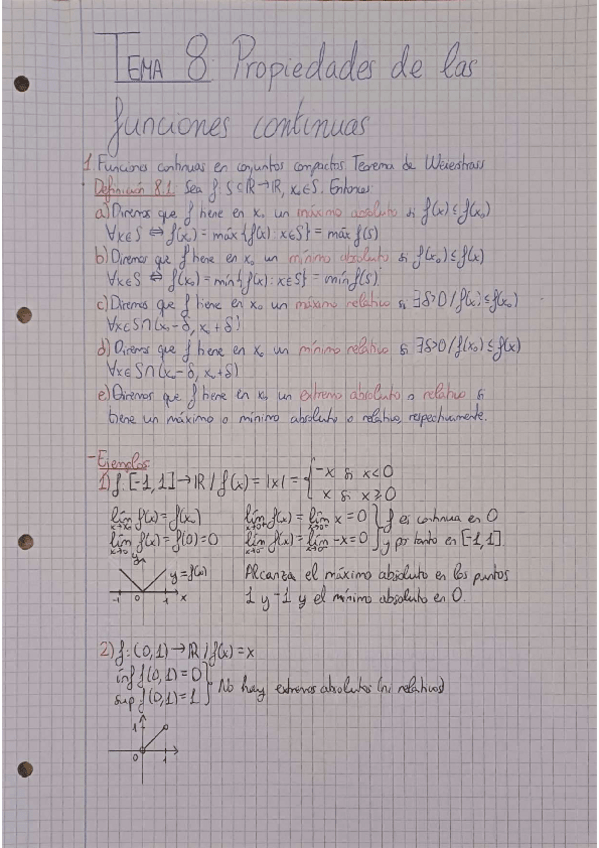 TEMA 8: Propiedades de las
funciones continuas
1 Funciones continuas en conjuntos compactos Teorema de Weierstrass
Definición 8.1: Sea f: S⊂ℝ→ℝ, x₀∈S. Entonces:
a) Diremos que f tiene en x₀ un máximo absoluto si f(x)≤f(x₀)
∀x∈S ⇔ f(x₀) = máx{f(x): x∈S} = máx f(S)
b) Diremos que f tiene en x₀ un mínimo absoluto si f(x₀)≤f(x)
∀x∈S ⇔ f(x₀) = mín{f(x): x∈S} = mín f(S)
c) Diremos que f tiene en x₀ un máximo relativo si ∃δ>0 / f(x)≤f(x₀)
∀x∈S∩(x₀-δ, x₀+δ)
d) Diremos que f tiene en x₀ un mínimo relativo si ∃δ>0 / f(x₀)≤f(x)
∀x∈S∩(x₀-δ, x₀+δ)
e) Diremos que f tiene en x₀ un extremo absoluto o relativo si
tiene un máximo o mínimo absoluto o relativo, respectivamente.
- Ejemplos
1) f: [-1, 1] → ℝ / f(x) = |x| = { -x si x<0
x si x≥0
lím x→x₀ f(x) = f(x₀) lím x→0⁺ f(x) = lím x→0⁺ x = 0 } f es continua en 0
lím x→0 f(x) = f(0) = 0 lím x→0⁻ f(x) = lím x→0⁻ -x = 0 } y por tanto en [-1, 1].
y
y = f(x) Alcanza el máximo absoluto en los puntos
-1 0 1 x 1 y -1 y el mínimo absoluto en 0.
2) f: (0, 1) → ℝ / f(x) = x
inf f(0, 1) = 0 } No hay extremos absolutos (ni relativos)
sup f(0, 1) = 1
1
0 1